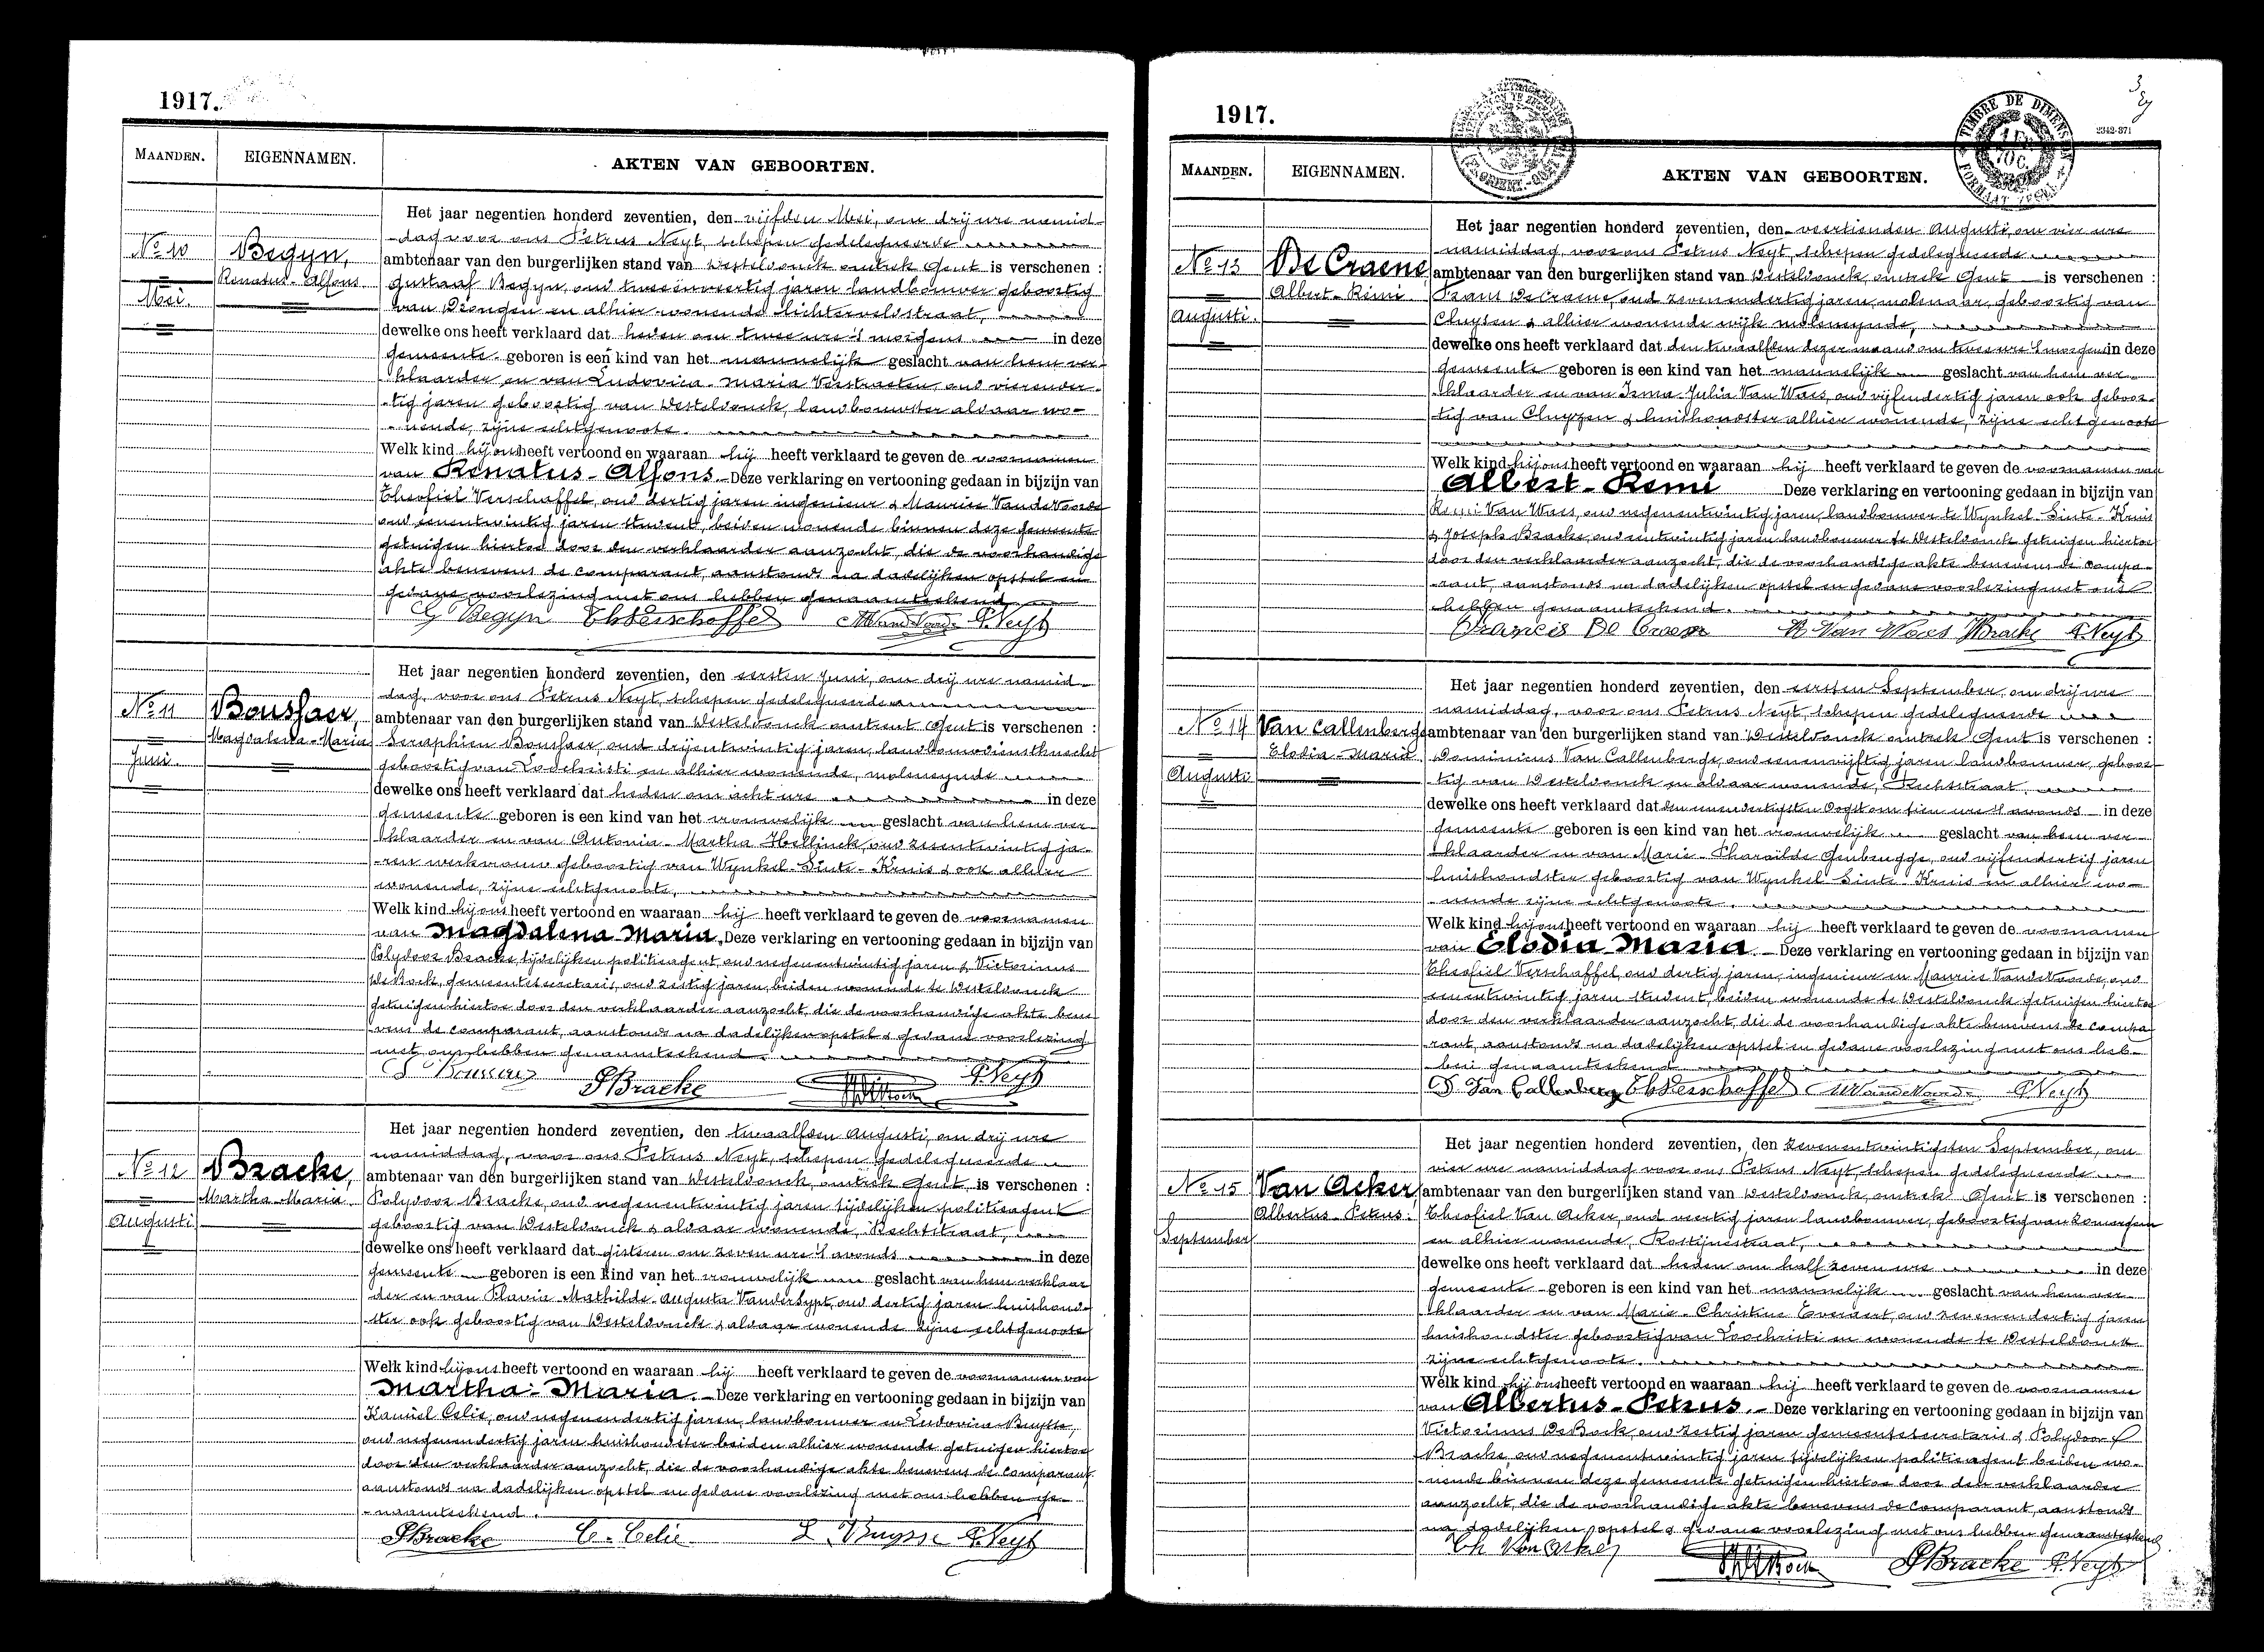 1917.
MAANDEN. EIGENNAMEN. AKTEN VAN GEBOORTEN.
Het jaar negentien honderd zeventien, den vijfden Mei, om drij ure namid-
-dag voor ons Petrus Neyt, schepen gedelegueerde
No 10 Begyn, ambtenaar van den burgerlijken stand van Westeldonck omtrek Gent is verschenen :
Renatus-Alfons Gustaaf Begyn, oud tweeenveertig jaren landbouwer geboortig
Mei. van Drongen en alhier wonende lichterveldstraat,
dewelke ons heeft verklaard dat heden om twee ure 's morgens in deze
gemeente geboren is een kind van het mannelijk geslacht van hem ver-
klaarder en van Ludovica Maria Verstraeten oud vierender-
-tig jaren geboortig van Westeldonck, landbouwster aldaar wo-
-nende, zijne echtgenoote.
Welk kind hij ons heeft vertoond en waaraan hij heeft verklaard te geven de voornamen
van Renatus-Alfons Deze verklaring en vertooning gedaan in bijzijn van
Theofiel Verschaffel, oud dertig jaren ingenieur & Maurice VandeVoorde
oud eenentwintig jaren student, beiden wonende binnen deze gemeente
getuigen hiertoe door den verklaarder aanzocht, die de voorhandige
akte benevens de comparant, aanstonds na dadelijken opstel en
gedane voorlezing met ons hebben genaamteekend
G Begyn ThVerschaffel MVandeVoorde P. Neyt
Het jaar negentien honderd zeventien, den eersten Juni, om drij ure namid-
dag, voor ons Petrus Neyt, schepen gedelegueerde
No 11 Boussaer, ambtenaar van den burgerlijken stand van Westeldonck omtrent Gent is verschenen :
Magdalena-Maria Seraphien Boussaer, oud drijentwintig jaren, landbouwdienstknecht
Juni. geboortig van Loochristi en alhier wonende, molensynde
dewelke ons heeft verklaard dat heden om acht ure in deze
gemeente geboren is een kind van het vrouwelijk geslacht van hem ver-
klaarder en van Antonia-Martha Hellinck oud zesentwintig ja-
-ren werkvrouw geboortig van Wynkel-Sinte-Kruis & ook alhier
wonende, zijne echtgenoote,
Welk kind hij ons heeft vertoond en waaraan hij heeft verklaard te geven de voornamen
van Magdalena Maria. Deze verklaring en vertooning gedaan in bijzijn van
Polydoor Bracke, tijdelijken politieagent oud negenentwintig jaren & Victorinus
DeBock, gemeentesecretaris, oud zestig jaren, beiden wonende te Westeldonck
getuigen hiertoe door den verklaarder aanzocht, die de voorhandige akte bene
vens de comparant, aanstonds na dadelijken opstel & gedane voorlezing
met ons hebben genaamteekend.
S Boussaer PBracke VDeBock P. Neyt
Het jaar negentien honderd zeventien, den twaalfden Augusti, om drij ure
namiddag, voor ons Petrus Neyt, schepen gedelegueerde
No 12 Bracke, ambtenaar van den burgerlijken stand van Westeldonck, omtrek Gent is verschenen :
Martha-Maria Polydoor Bracke, oud negenentwintig jaren tijdelijken politieagent
Augusti geboortig van Westeldonck & aldaar wonende, Rechtstraat,
dewelke ons heeft verklaard dat gisteren om zeven ure 's avonds in deze
gemeente geboren is een kind van het vrouwelijk geslacht van hem verklaar
der en van Flavia-Mathilde-Augusta Vandersypt, oud dertig jaren huishoud-
ster ook geboortig van Westeldonck & aldaar wonende zijne echtgenoote
Welk kind hij ons heeft vertoond en waaraan hij heeft verklaard te geven de voornamen van
Martha-Maria. Deze verklaring en vertooning gedaan in bijzijn van
Kamiel Celie, oud negenendertig jaren, landbouwer en Ludovica Buysse,
oud negenendertig jaren huishoudster beiden alhier wonende getuigen hiertoe
door den verklaarder aanzocht, die de voorhandige akte benevens de comparant,
aanstonds na dadelijken opstel en gedane voorlezing met ons hebben ge-
-naamteekend.
PBracke C. Celie L. Buysse P. Neyt
1917.
TIMBRE DE DIMENSION
FORMAAT ZEGEL
2342-371
MAANDEN. EIGENNAMEN. AKTEN VAN GEBOORTEN.
Het jaar negentien honderd zeventien, den veertienden Augusti, om vier ure
namiddag, voor ons Petrus Neyt, schepen gedelegueerde
No 13 De Craene, ambtenaar van den burgerlijken stand van Westeldonck, omtrek Gent is verschenen :
Albert-Remi Frans DeCraene, oud zevenendertig jaren, molenaar, geboortig van
Augusti. Cluysen & alhier wonende wijk molensynde,
dewelke ons heeft verklaard dat den twaalfden dezer maand om twee ure 's morgens in deze
gemeente geboren is een kind van het mannelijk geslacht van hem ver-
klaarder en van Irma-Julia Van Waes, oud vijfendertig jaren ook geboor-
tig van Cluyzen & huishoudster alhier wonende, zijne echtgenoote
Welk kind hij ons heeft vertoond en waaraan hij heeft verklaard te geven de voornamen van
Albert-Remi Deze verklaring en vertooning gedaan in bijzijn van
Remi Van Waes, oud negenentwintig jaren, landbouwer te Wynkel-Sinte-Kruis
& Joseph Bracke, oud entwintig jaren landbouwer te Westeldonck getuigen hiertoe
door den verklaarder aanzocht, die de voorhandige akte benevens de compa-
-rant, aanstonds na dadelijken opstel en gedane voorlezing met ons
hebben genaamteekend.
Francies De Craene R Van Waes JBracke P. Neyt
Het jaar negentien honderd zeventien, den eersten September, om drij ure
namiddag, voor ons Petrus Neyt, schepen gedelegueerde
No 14 Van Callenberge ambtenaar van den burgerlijken stand van Westeldonck omtrek Gent is verschenen :
Elodia-Maria Dominicus Van Callenberge, oud eenenvijftig jaren landbouwer, geboor-
Augusti tig van Westeldonck en aldaar wonende, Rechtstraat,
dewelke ons heeft verklaard dat den eenendertigsten Oogst om tien ure 's avonds in deze
gemeente geboren is een kind van het vrouwelijk geslacht van hem ver-
klaarder en van Marie-Pharaïlde Genbrugge, oud vijfendertig jaren
huishoudster geboortig van Wynkel Sinte-Kruis en alhier wo-
-nende zijne echtgenoote.
Welk kind hij ons heeft vertoond en waaraan hij heeft verklaard te geven de voornamen
van Elodia Maria. Deze verklaring en vertooning gedaan in bijzijn van
Theofiel Verschaffel, oud dertig jaren, ingenieur en Maurice VandeVoorde, oud
eenentwintig jaren student, beiden wonende te Westeldonck getuigen hiertoe
door den verklaarder aanzocht, die de voorhandige akte benevens de compa
rant, aanstonds na dadelijken opstel en gedane voorlezing met ons heb-
ben genaamteekend
D. Van Callenberg ThVerschaffel MVandeVoorde P. Neyt
Het jaar negentien honderd zeventien, den zevenentwintigsten September, om
vier ure namiddag voor ons Petrus Neyt, schepen gedelegueerde
No 15 Van Acker, ambtenaar van den burgerlijken stand van Westeldonck, omtrek Gent is verschenen :
Albertus-Petrus. Theofiel Van Acker, oud veertig jaren landbouwer, geboortig van Somergem
September en alhier wonende, Rostijnestraat,
dewelke ons heeft verklaard dat heden om half zeven ure in deze
gemeente geboren is een kind van het mannelijk geslacht van hem ver-
klaarder en van Marie-Christine Everaert, oud zevenendertig jaren
huishoudster geboortig van Loochristi en wonende te Westeldonck
zijne echtgenoote.
Welk kind hij ons heeft vertoond en waaraan hij heeft verklaard te geven de voornamen
van Albertus-Petrus. Deze verklaring en vertooning gedaan in bijzijn van
Victorinus DeBock, oud zestig jaren gemeentesecretaris & Polydoor
Bracke oud negenentwintig jaren tijdelijken politieagent beiden wo-
-nende binnen deze gemeente getuigen hiertoe door den verklaarder
aanzocht, die de voorhandige akte benevens de comparant, aanstonds
na dadelijken opstel & gedane voorlezing met ons hebben genaamteekend
Th Van Acker VDeBock PBracke P. Neyt